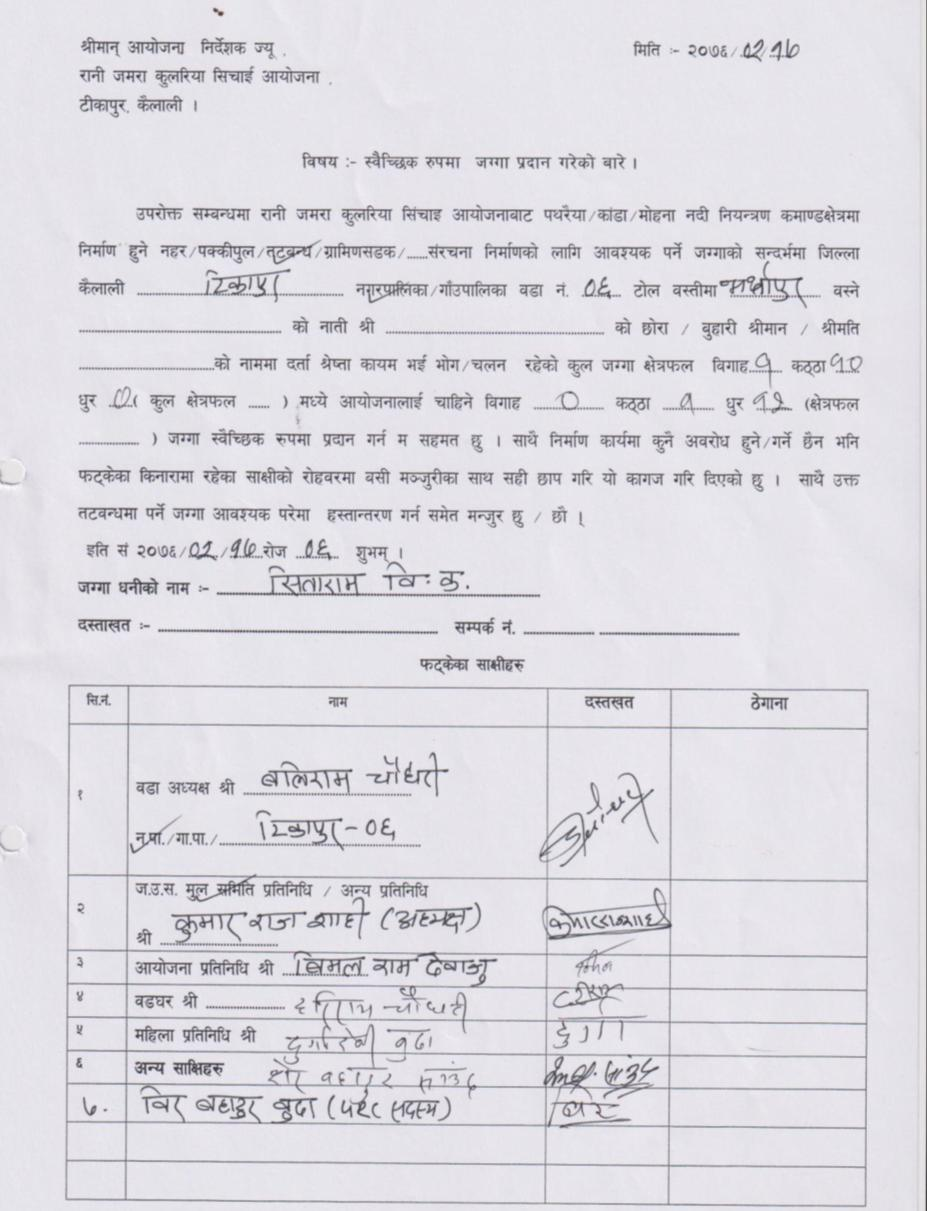 श्रीमान् आयोजना निर्देशक ज्यू . मिति :- २०७६/०२/१७
रानी जमरा कुलरिया सिचाई आयोजना .
टीकापुर, कैलाली ।
विषय :- स्वैच्छिक रुपमा जग्गा प्रदान गरेको बारे ।
उपरोक्त सम्बन्धमा रानी जमरा कुलरिया सिंचाइ आयोजनाबाट पथरैया/कांडा/मोहना नदी नियन्त्रण कमाण्डक्षेत्रमा
निर्माण हुने नहर/पक्कीपुल/तटबन्ध/ग्रामिणसडक/......संरचना निर्माणको लागि आवश्यक पर्ने जग्गाको सन्दर्भमा जिल्ला
कैलाली टिकापुर नगरपालिका/गाँउपालिका वडा नं. ०६ टोल वस्तीमा वस्ने
को नाती श्री को छोरा / बुहारी श्रीमान / श्रीमति
को नाममा दर्ता श्रेप्ता कायम भई भोग/चलन रहेको कुल जग्गा क्षेत्रफल विगाह १ कठ्ठा १०
धुर ०( कुल क्षेत्रफल ..... ) मध्ये आयोजनालाई चाहिने विगाह ० कठ्ठा १ धुर १२ (क्षेत्रफल
) जग्गा स्वैच्छिक रुपमा प्रदान गर्न म सहमत छु । साथै निर्माण कार्यमा कुनै अवरोध हुने/गर्ने छैन भनि
फट्केका किनारामा रहेका साक्षीको रोहवरमा वसी मञ्जुरीका साथ सही छाप गरि यो कागज गरि दिएको छु । साथै उक्त
तटबन्धमा पर्ने जग्गा आवश्यक परेमा हस्तान्तरण गर्न समेत मन्जुर छु / छौ ।
इति सं २०७६/०२/१७ रोज ०६ शुभम् ।
जग्गा धनीको नाम :- सिताराम वि.क.
दस्ताखत :- सम्पर्क नं.
फट्केका साक्षीहरु
सि.नं. नाम दस्तखत ठेगाना
१ वडा अध्यक्ष श्री बलिराम चौधरी
न.पा./गा.पा./ टिकापुर-०६
ज.उ.स. मुल समिति प्रतिनिधि / अन्य प्रतिनिधि
२ श्री कुमार राज शाही (अध्यक्ष)
३ आयोजना प्रतिनिधि श्री बिमल राम
४ वडघर श्री चौधरी
५ महिला प्रतिनिधि श्री दुर्गादेवी बुढा दुर्गा
६ अन्य साक्षिहरु शेर बहादुर साउद
७. विर बहादुर बुढा ( सदस्य) विर